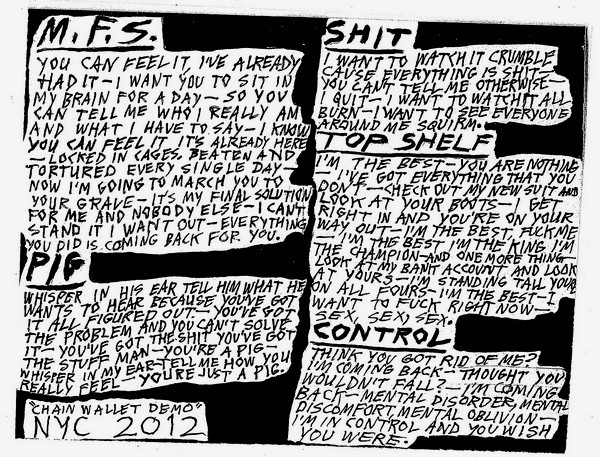 M.F.S.
YOU CAN FEEL IT, I'VE ALREADY
HAD IT - I WANT YOU TO SIT IN
MY BRAIN FOR A DAY - SO YOU
CAN TELL ME WHO I REALLY AM
AND WHAT I HAVE TO SAY - I KNOW
YOU CAN FEEL IT IT'S ALREADY HERE
- LOCKED IN CAGES. BEATEN AND
TORTURED EVERY SINGLE DAY -
NOW I'M GOING TO MARCH YOU TO
YOUR GRAVE - IT'S MY FINAL SOLUTION
FOR ME AND NOBODY ELSE - I CAN'T
STAND IT I WANT OUT - EVERYTHING
YOU DID IS COMING BACK FOR YOU.
PIG
WHISPER IN HIS EAR TELL HIM WHAT HE
WANTS TO HEAR BECAUSE YOU'VE GOT
IT ALL FIGURED OUT - YOU'VE GOT
THE PROBLEM AND YOU CAN'T SOLVE
IT - YOU'VE GOT THE SHIT YOU'VE GOT
THE STUFF MAN - YOU'RE A PIG -
WHISPER IN MY EAR - TELL ME HOW YOU
REALLY FEEL - YOU'RE JUST A PIG.
"CHAIN WALLET DEMO"
NYC 2012
SHIT
I WANT TO WATCH IT CRUMBLE
CAUSE EVERYTHING IS SHIT -
YOU CAN'T TELL ME OTHERWISE -
I QUIT - I WANT TO WATCH IT ALL
BURN - I WANT TO SEE EVERYONE
AROUND ME SQUIRM.
TOP SHELF
I'M THE BEST - YOU ARE NOTHING
- I'VE GOT EVERYTHING THAT YOU
DON'T - CHECK OUT MY NEW SUIT AND
LOOK AT YOUR BOOTS - I GET
RIGHT IN AND YOU'RE ON YOUR
WAY OUT - I'M THE BEST, FUCK ME
- I'M THE BEST I'M THE KING I'M
THE CHAMPION - AND ONE MORE THING -
LOOK AT MY BANK ACCOUNT AND LOOK
AT YOURS - I'M STANDING TALL YOUR
ON ALL FOURS - I'M THE BEST - I
WANT TO FUCK RIGHT NOW -
SEX, SEX, SEX.
CONTROL
THINK YOU GOT RID OF ME?
I'M COMING BACK - THOUGHT YOU
WOULDN'T FALL? - I'M COMING
BACK - MENTAL DISORDER, MENTAL
DISCOMFORT, MENTAL OBLIVION -
I'M IN CONTROL AND YOU WISH
YOU WERE.